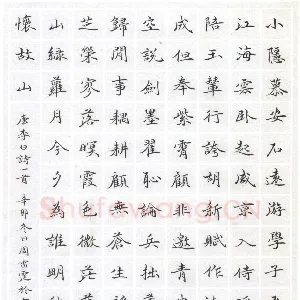 小隱慕安石遠游學子
江海雲臥起咸京入侍
陪玉輦行誇胡新賦作
成但奉紫霄顧非邀青
空說劍墨翟恥論兵拙
歸閒事耦耕顧無蒼生
芝榮寥落暝霞色微茫
山綠蘿月今夕為誰明
懷故山 唐李白詩一首 辛卯冬日周雲霓於
Shufawang.CN